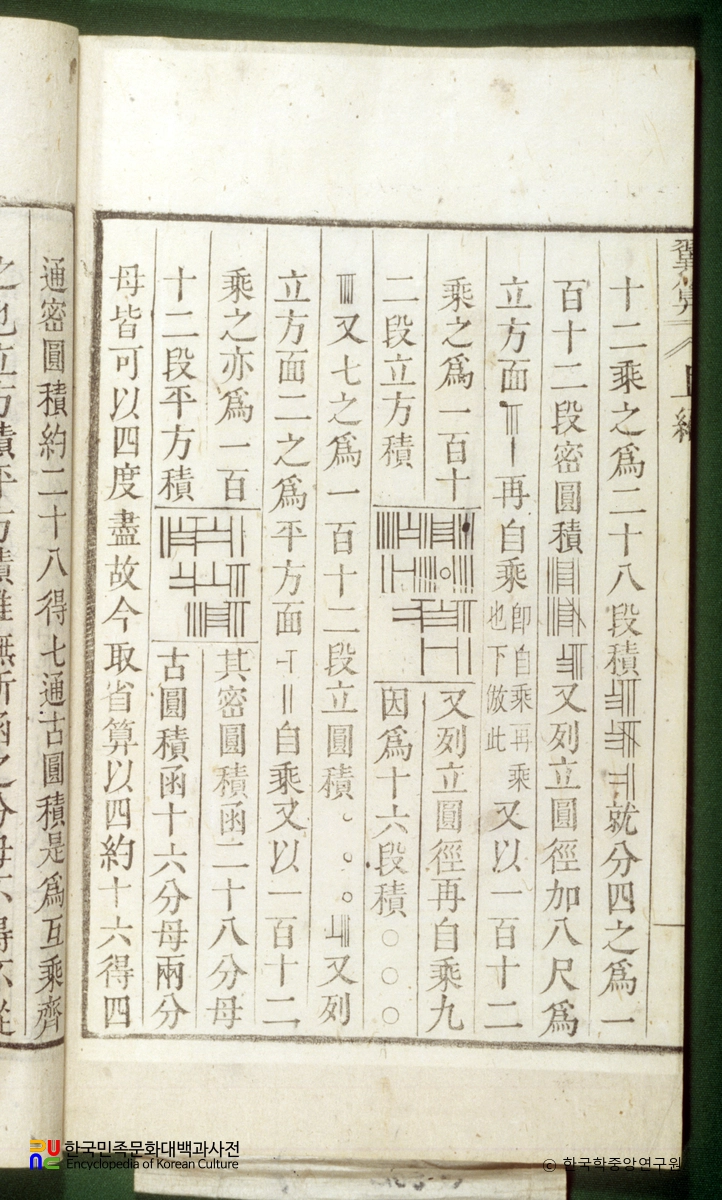 翼算 上編
十二乘之爲二十八段積就分四之爲一
百十二段密圓積又列立圓徑加八尺爲
立方面再自乘卽自乘再乘也下倣此又以一百十二
乘之爲一百十又列立圓徑再自乘九
二段立方積因爲十六段積〇〇〇
又七之爲一百十二段立圓積〇〇〇又列
立方面二之爲平方面自乘又以一百十二
乘之亦爲一百其密圓積函二十八分母
十二段平方積古圓積函十六分母兩分
母皆可以四度盡故今取省算以四約十六得四
通密圓積約二十八得七通古圓積是爲互乘齊
한국민족문화대백과사전
Encyclopedia of Korean Culture
© 한국학중앙연구원